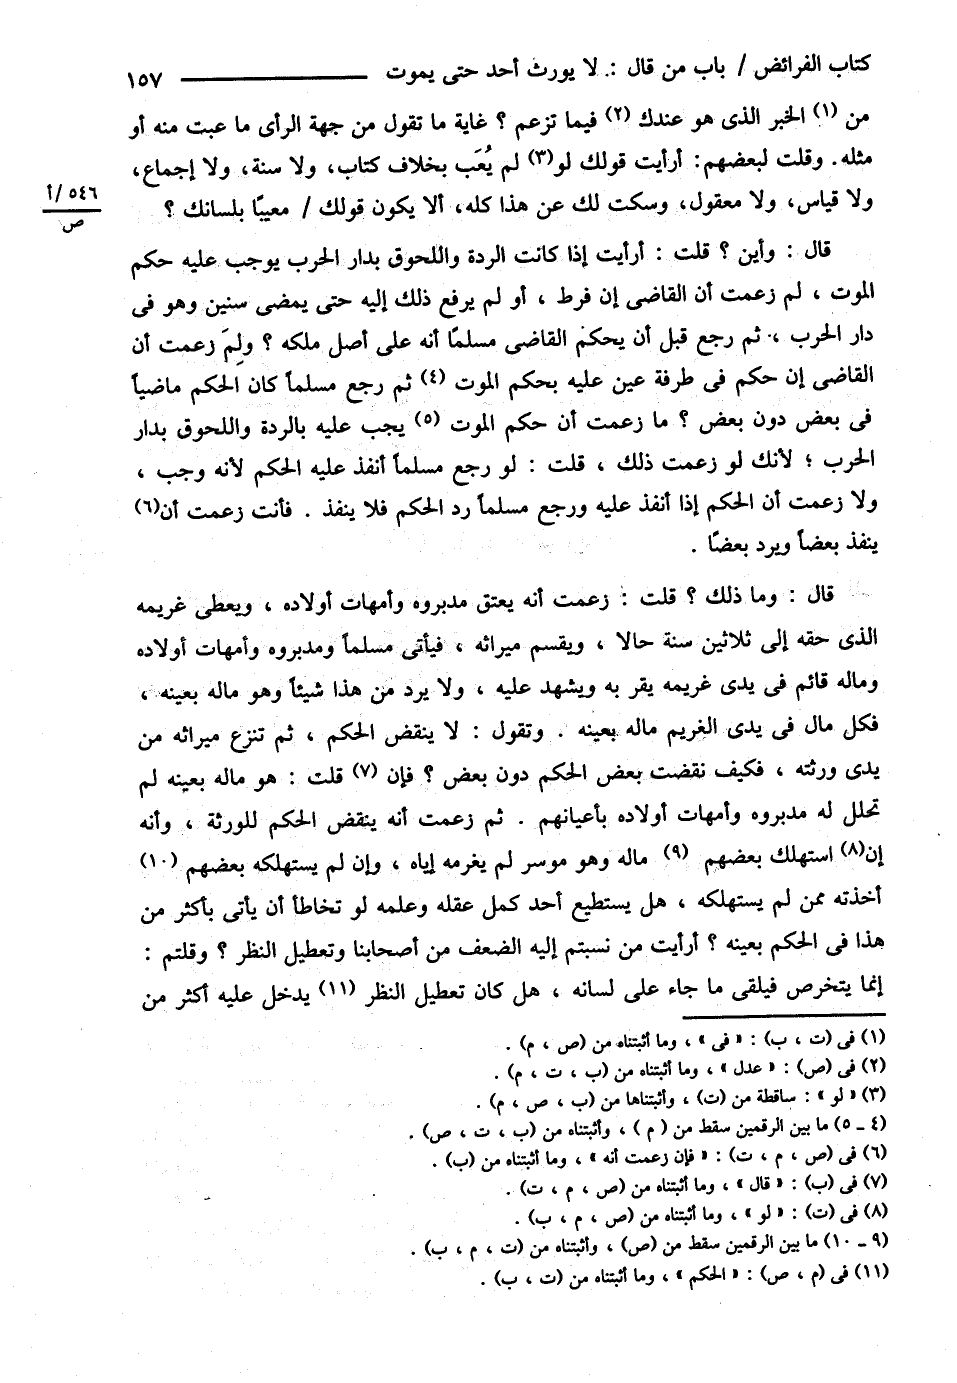 كتاب الفرائض / باب من قال : لا يورث أحد حتى يموت ١٥٧
من (١) الخبر الذى هو عندك (٢) فيما تزعم ؟ غاية ما تقول من جهة الرأى ما عبت منه أو
مثله . وقلت لبعضهم : أرأيت قولك لو(٣) لم يُعَب بخلاف كتاب، ولا سنة، ولا إجماع،
ولا قياس، ولا معقول، وسكت لك عن هذا كله، ألا يكون قولك / معيبًا بلسانك ؟
٥٤٦ /أ
ص
قال : وأين ؟ قلت : أرأيت إذا كانت الردة واللحوق بدار الحرب يوجب عليه حكم
الموت ، لم زعمت أن القاضى إن فرط ، أو لم يرفع ذلك إليه حتى يمضى سنين وهو فى
دار الحرب ، ثم رجع قبل أن يحكم القاضى مسلمًا أنه على أصل ملكه ؟ ولِمَ زعمت أن
القاضى إن حكم فى طرفة عين عليه بحكم الموت (٤) ثم رجع مسلماً كان الحكم ماضياً
فى بعض دون بعض ؟ ما زعمت أن حكم الموت (٥) يجب عليه بالردة واللحوق بدار
الحرب ؛ لأنك لو زعمت ذلك ، قلت : لو رجع مسلماً أنفذ عليه الحكم لأنه وجب ،
ولا زعمت أن الحكم إذا أنفذ عليه ورجع مسلماً رد الحكم فلا ينفذ . فأنت زعمت أن(٦)
ينفذ بعضاً ويرد بعضًا .
قال : وما ذلك ؟ قلت : زعمت أنه يعتق مدبروه وأمهات أولاده ، ويعطى غريمه
الذى حقه إلى ثلاثين سنة حالا ، ويقسم ميراثه ، فيأتى مسلماً ومدبروه وأمهات أولاده
وماله قائم فى يدى غريمه يقر به ويشهد عليه ، ولا يرد من هذا شيئاً وهو ماله بعينه ،
فكل مال فى يدى الغريم ماله بعينه . وتقول : لا ينقض الحكم ، ثم تنزع ميراثه من
يدى ورثته ، فكيف نقضت بعض الحكم دون بعض ؟ فإن (٧) قلت : هو ماله بعينه لم
تحلل له مدبروه وأمهات أولاده بأعيانهم . ثم زعمت أنه ينقض الحكم للورثة ، وأنه
إن(٨) استهلك بعضهم (٩) ماله وهو موسر لم يغرمه إياه ، وإن لم يستهلكه بعضهم (١٠)
أخذته ممن لم يستهلكه ، هل يستطيع أحد كمل عقله وعلمه لو تخاطأ أن يأتى بأكثر من
هذا فى الحكم بعينه ؟ أرأيت من نسبتم إليه الضعف من أصحابنا وتعطيل النظر ؟ وقلتم :
إنما يتخرص فيلقى ما جاء على لسانه ، هل كان تعطيل النظر (١١) يدخل عليه أكثر من
(١) فى (ت ، ب) : « فى » ، وما أثبتناه من (ص ، م) .
(٢) فى (ص) : « عدل » ، وما أثبتناه من (ب ، ت ، م) .
(٣) « لو » : ساقطة من (ت) ، وأثبتناها من (ب ، ص ، م) .
(٤ ـ ٥) ما بين الرقمين سقط من ( م ) ، وأثبتناه من (ب ، ت ، ص) .
(٦) فى (ص ، م ، ت) : « فإن زعمت أنه » ، وما أثبتناه من (ب) .
(٧) فى (ب) : « قال » ، وما أثبتناه من (ص ، م ، ت) .
(٨) فى (ت) : « لو » ، وما أثبتناه من (ص ، م ، ب) .
(٩ ـ ١٠) ما بين الرقمين سقط من (ص) ، وأثبتناه من (ت ، م ، ب) .
(١١) فى (م ، ص) : « الحكم » ، وما أثبتناه من (ت ، ب) .